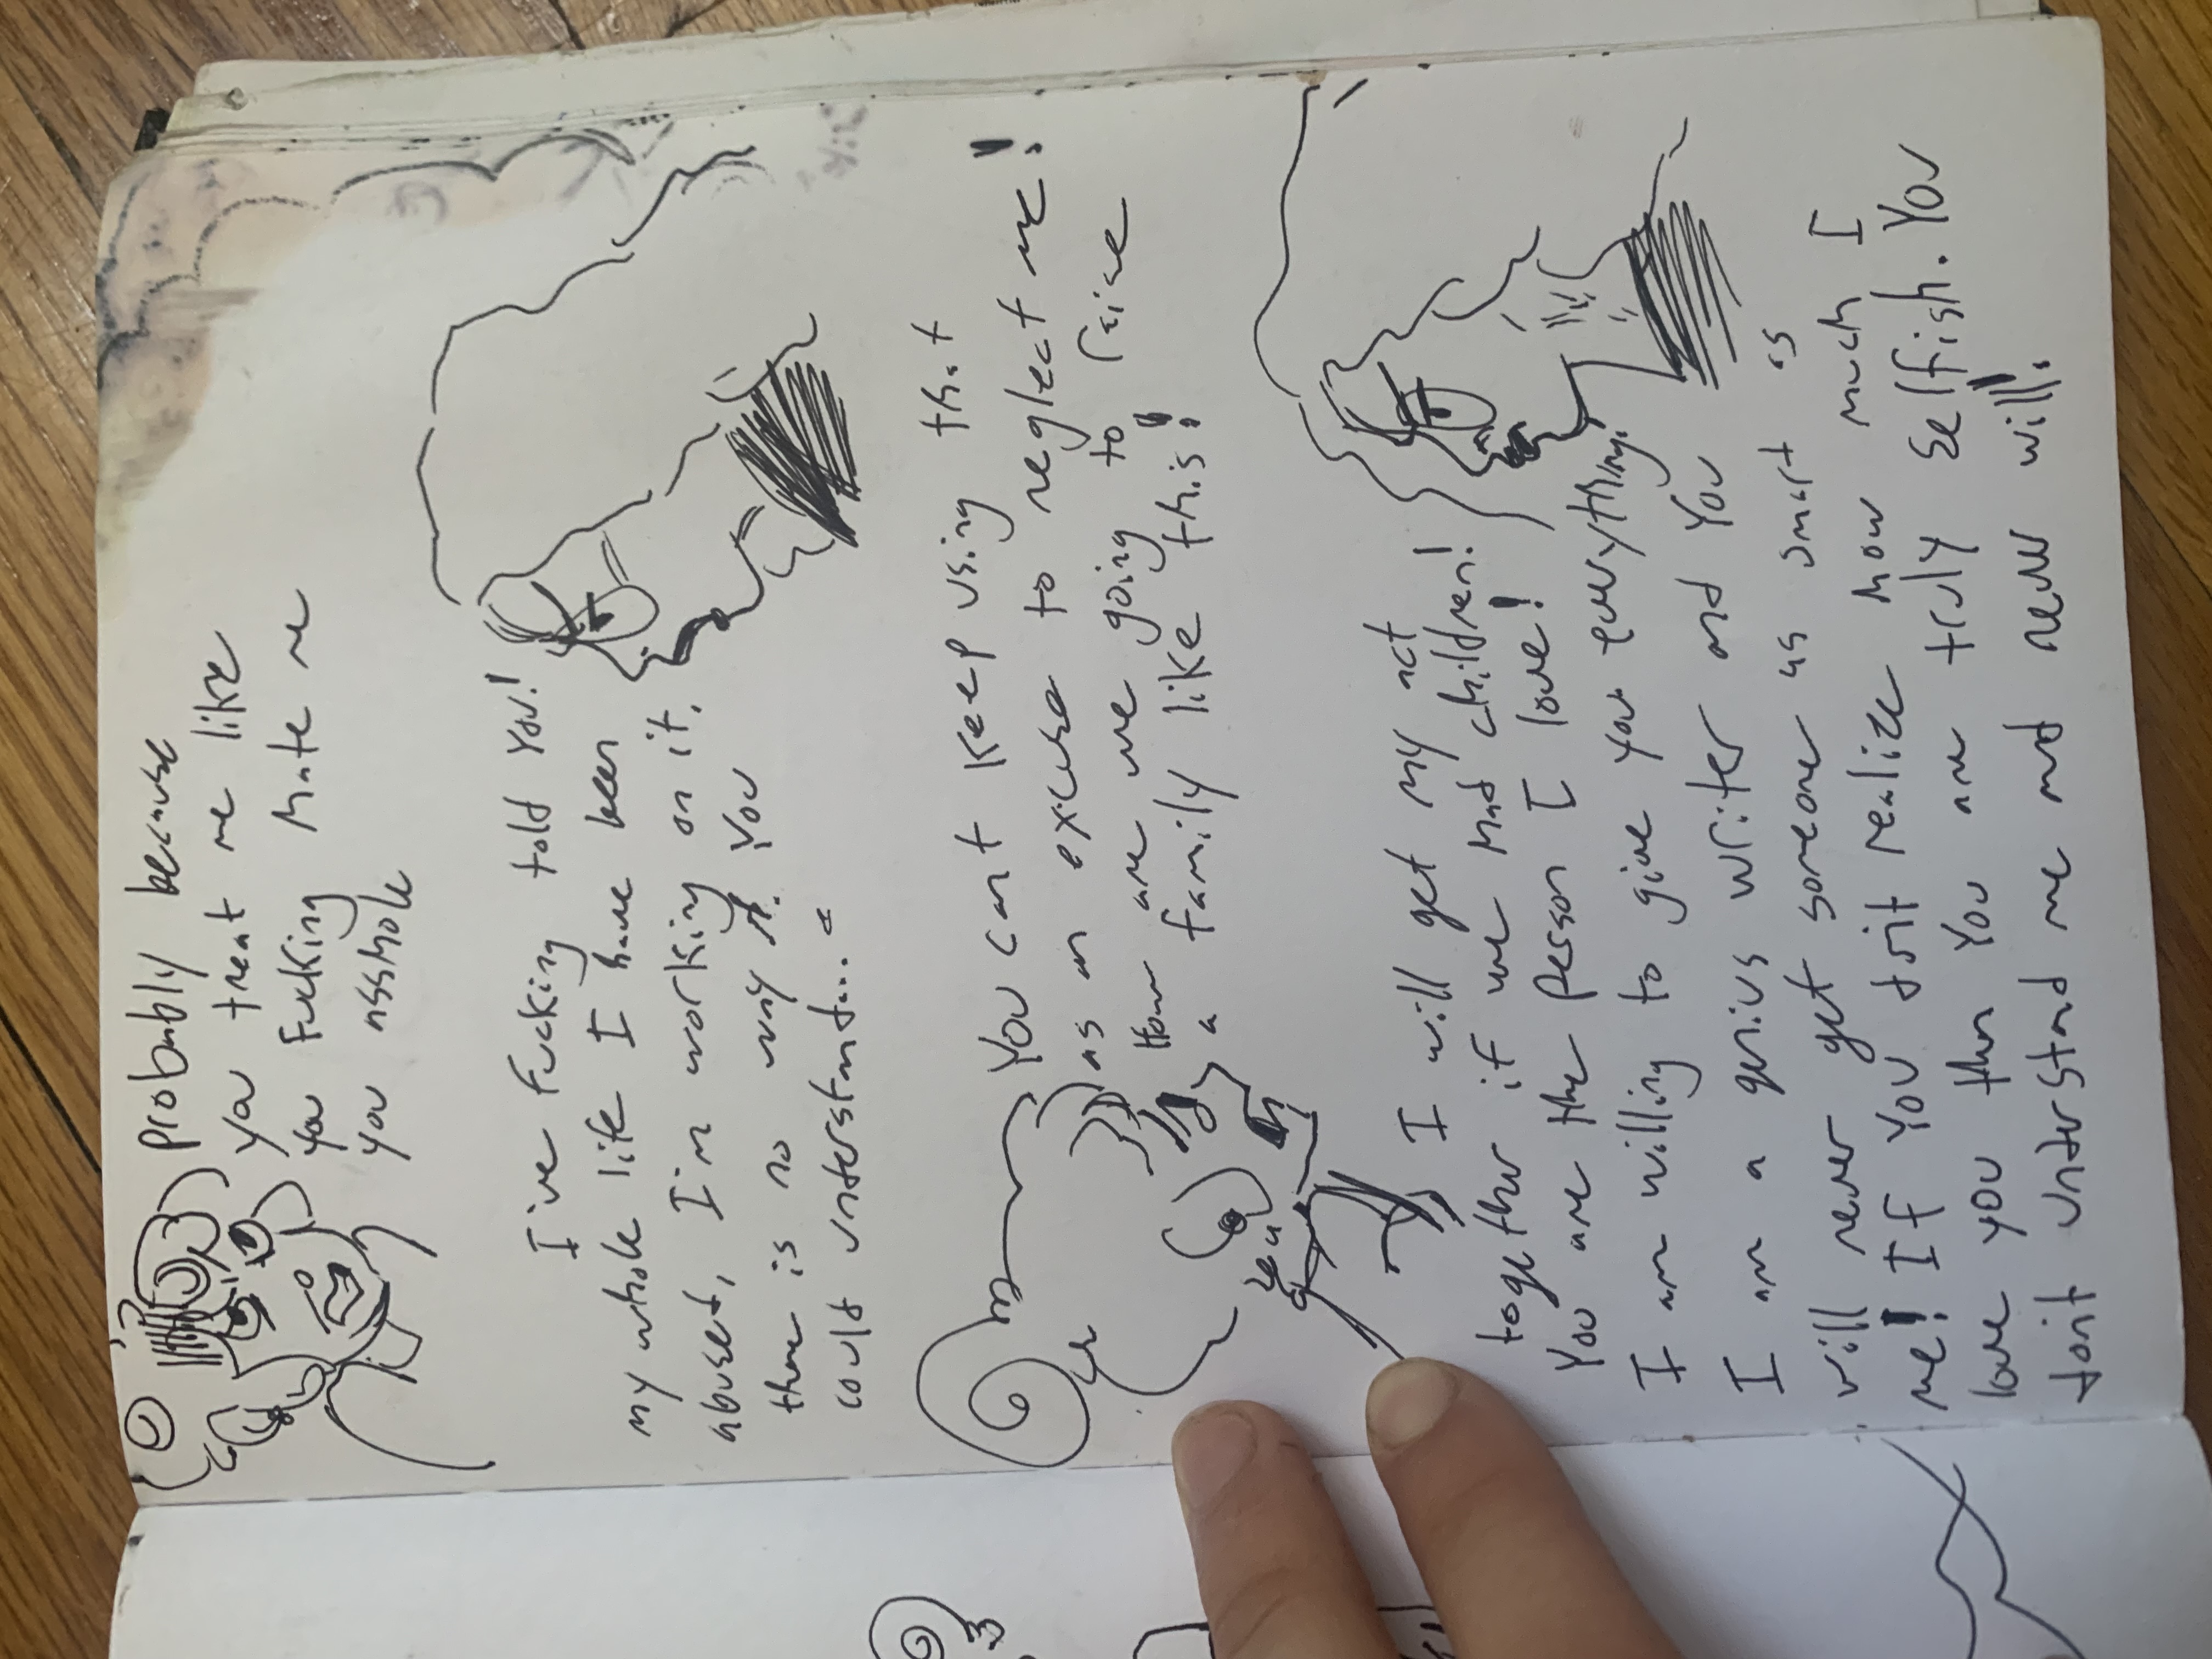 probably because
you treat me like
you fucking hate me
you asshole
I've fucking told you!
my whole life I have been
abused, I'm working on it.
there is no way you
could understand...
You cant keep using that
as an excuse to neglect me!
How are we going to raise
a family like this!
I will get my act
together if we had children!
You are the person I love!
I am willing to give you everything.
I am a genius writer and you
will never get someone as smart as
me! If you dont realize how much I
love you then you are truly selfish. You
dont understand me and never will!